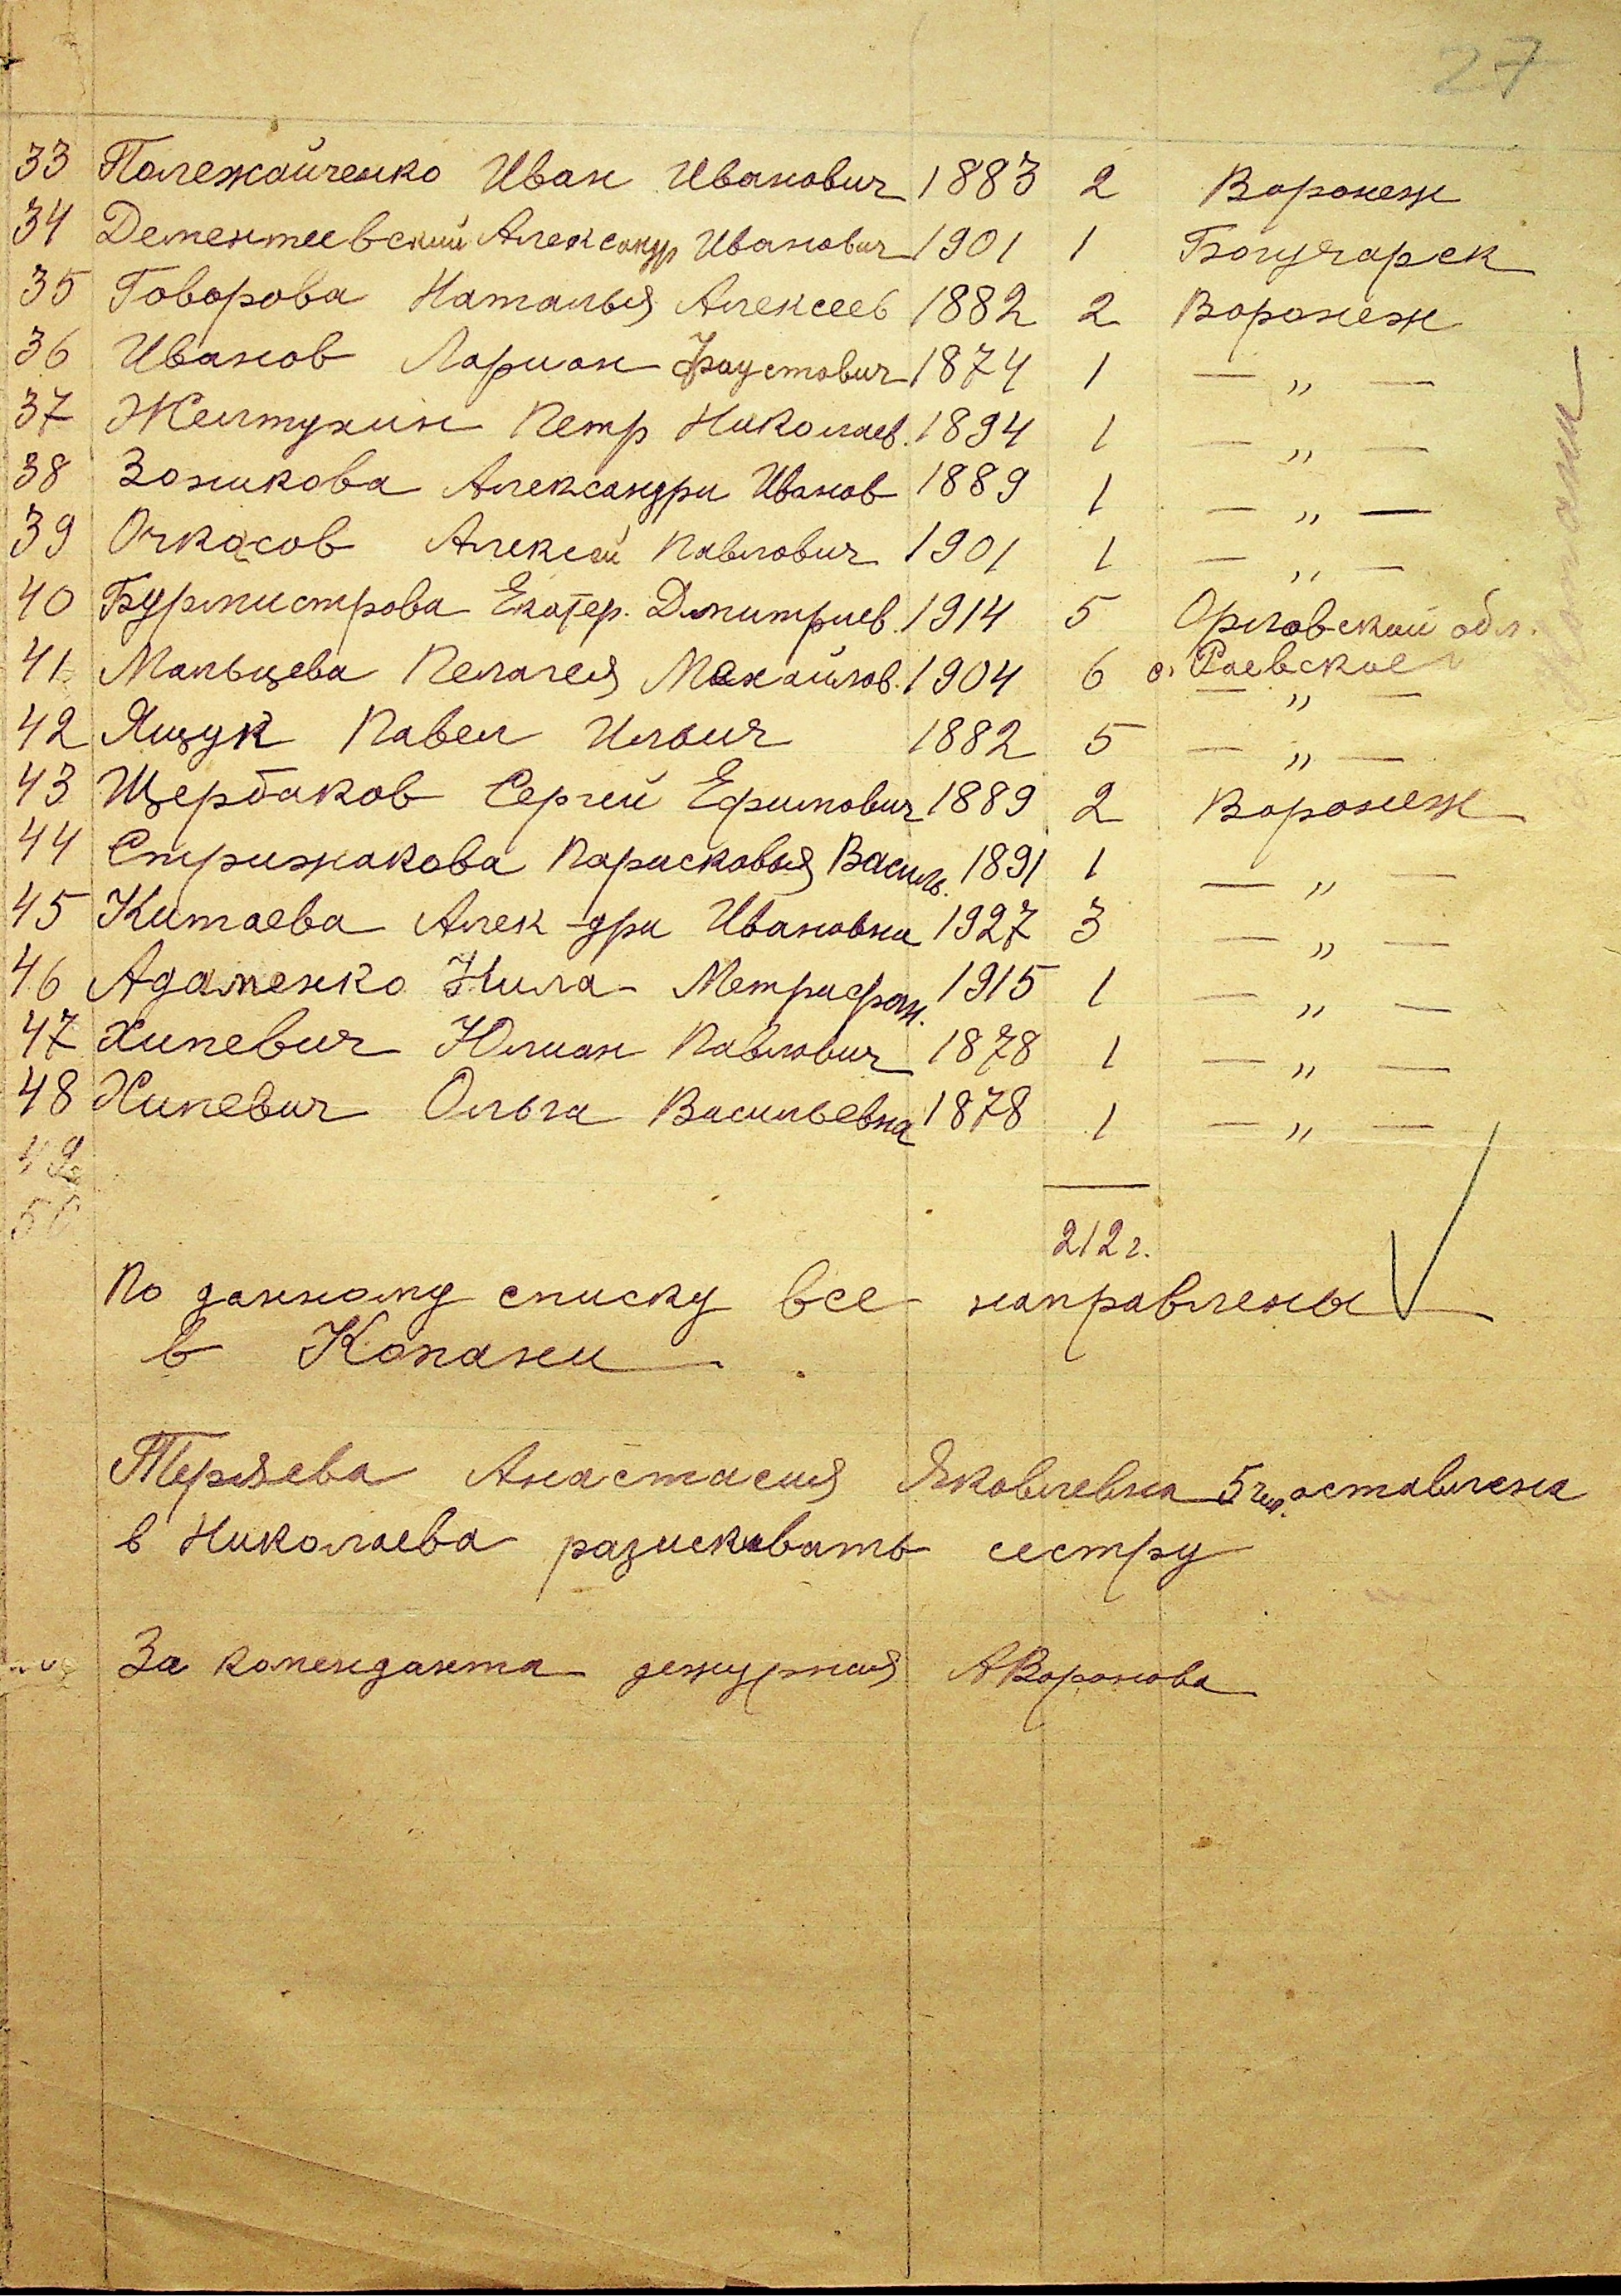 27
33 Полежайченко Иван Иванович 1883 2 Воронеж
34 Дементеевский Александр Иванович 1901 1 Богучарск
35 Говорова Наталья Алексеев 1882 2 Воронеж
36 Иванов Ларион Фаустович 1874 1 — „ —
37 Желтухин Петр Николаев. 1894 1 — „ —
38 Зошкова Александри Иванов 1889 1 — „ —
39 Очкасов Алексей Павлович 1901 1 — „ —
40 Бурмистрова Екатер. Дмитриев. 1914 5 Орловский обл.
41 Мальцева Пелагея Михайлов. 1904 6 с. Раевское — „ —
42 Ящук Павел Ильич 1882 5 — „ —
43 Щербаков Сергей Ефимович 1889 2 Воронеж
44 Стрижакова Парасковья Василь. 1891 1 — „ —
45 Китаева Алек-дра Ивановна 1927 3 — „ —
46 Адаменко Нила Метрифан. 1915 1 — „ —
47 Хиневич Юлиан Павлович 1878 1 — „ —
48 Хиневич Ольга Васильевна 1878 1 — „ —
49
50
212 г.
По данному списку все направлены
в Копани
Теряева Анастасия Яковлевна 5 чел. оставлена
в Николаева разискивать сестру
За комендакта дежурная АВоронова